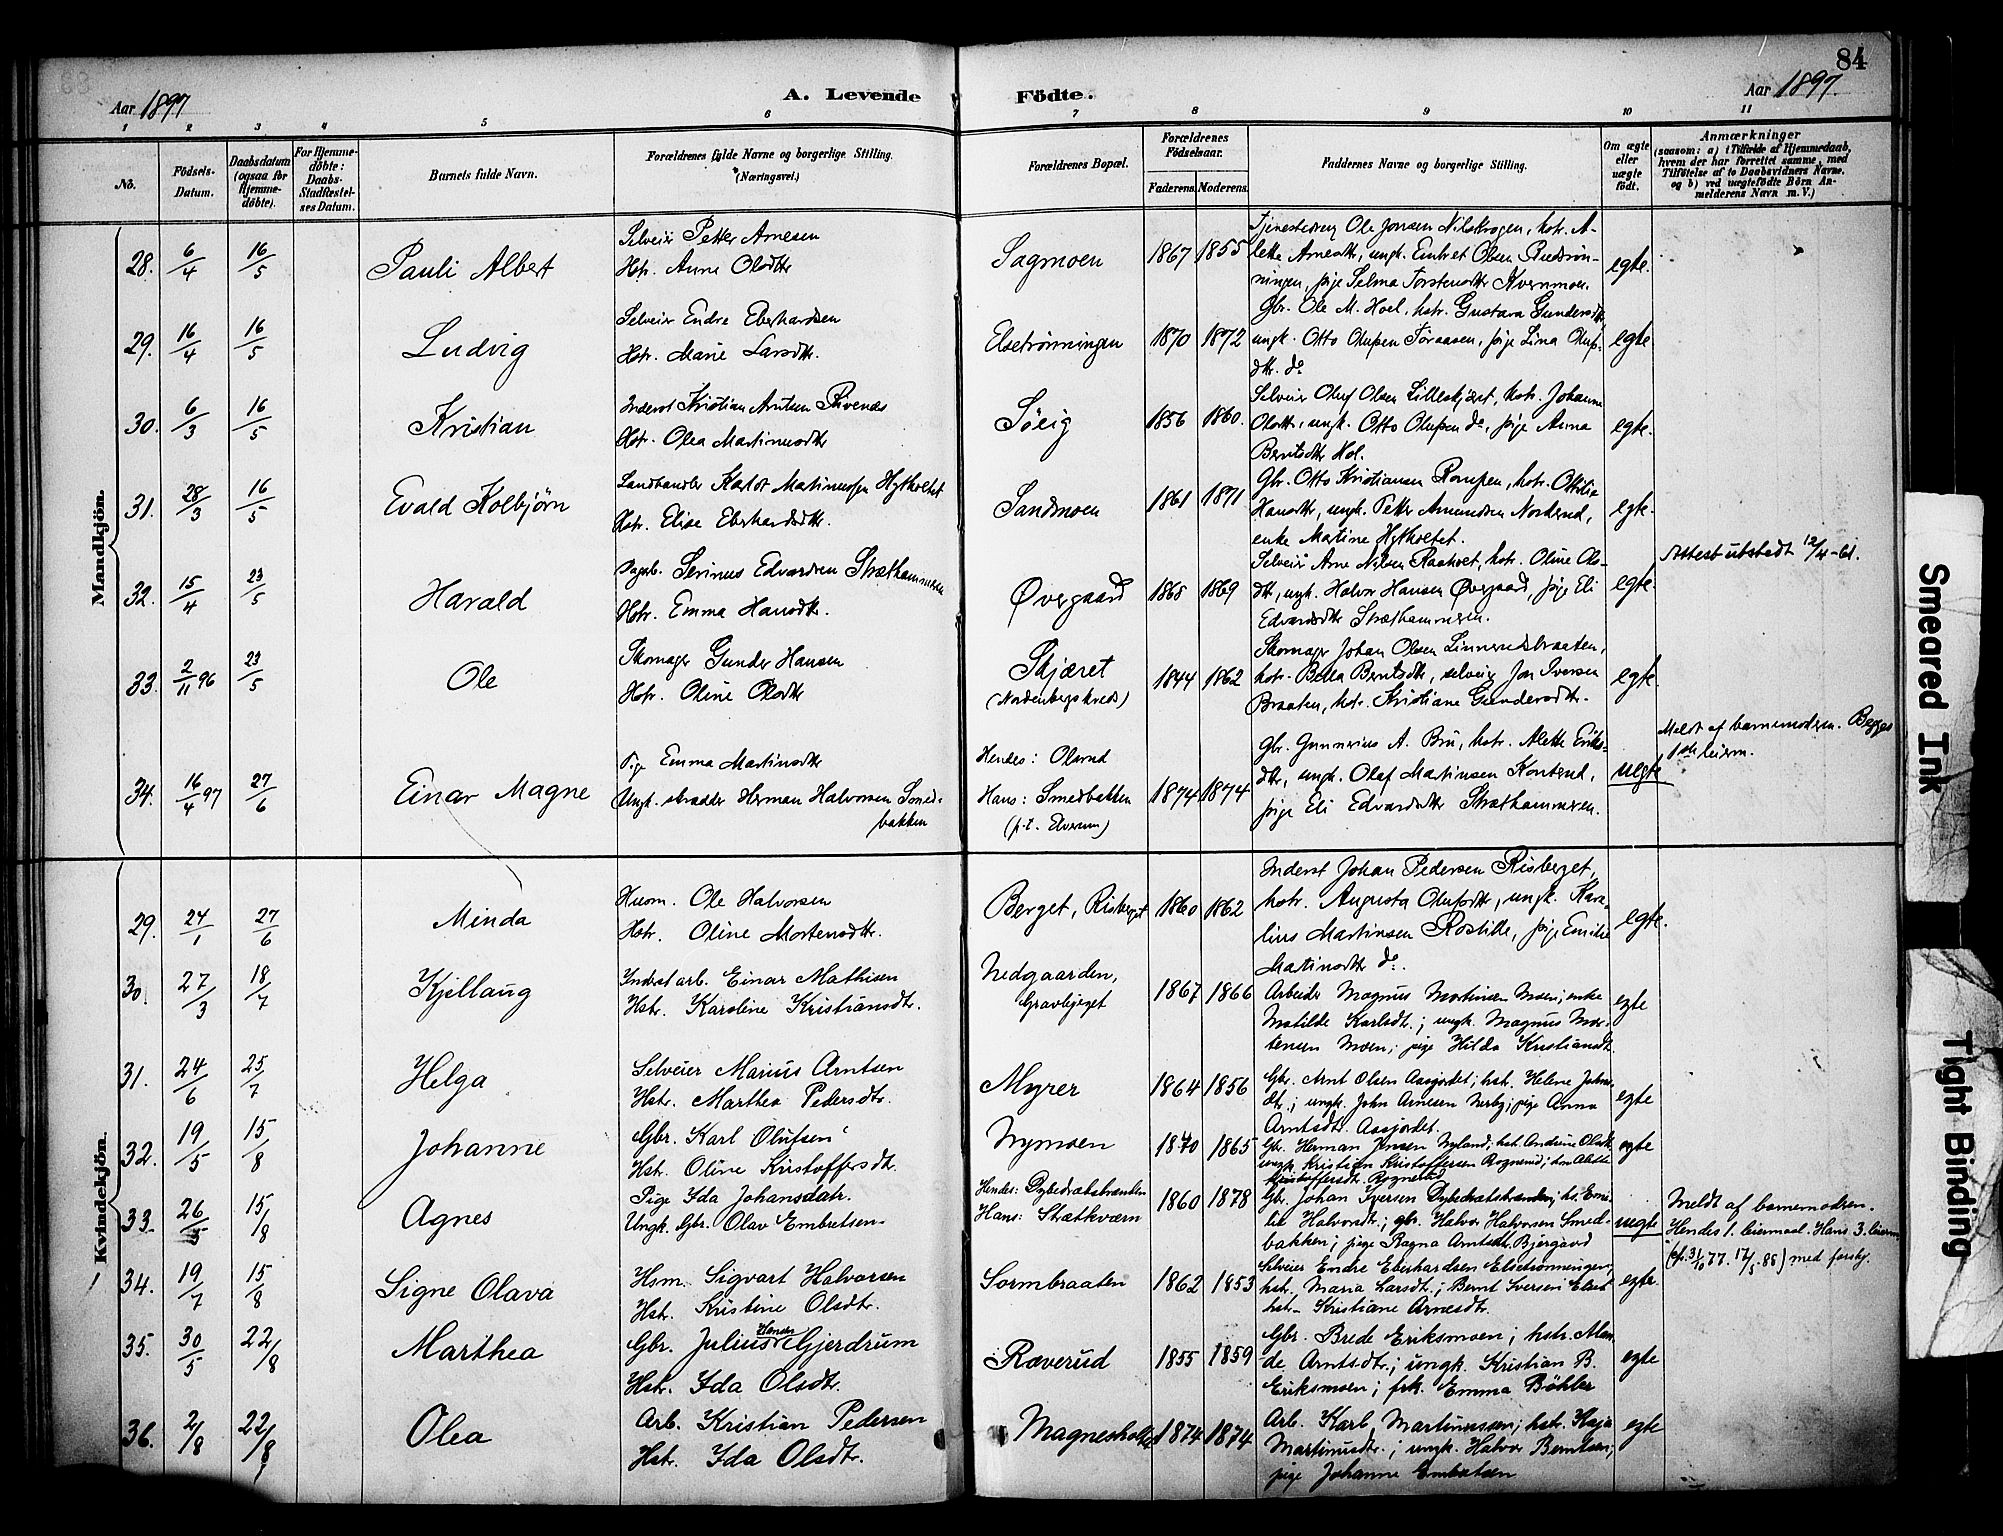 84
Aar 1897
A. Levende Födte.
Aar 1897.
1 2 3 4 5 6 7 8 9 10 11
No.
Födsels-
Datum.
Daabsdatum
(ogsaa for
Hjemme-
döbte).
For Hjemme-
döbte:
Daabs-
Stadfæstel-
ses Datum.
Barnets fulde Navn.
Forældrenes fulde Navne og borgerlige Stilling.
(Næringsvei.)
Forældrenes Bopæl.
Forældrenes
Födselsaar.
Faderens. Moderens.
Faddernes Navne og borgerlige Stilling.
Om ægte
eller
uægte
födt.
Anmærkninger
(saasom: a) i Tilfælde af Hjemmedaab,
hvem der har forrettet samme, med
Tilföielse af to Daabsvidners Navne.
og b) ved uægtefödte Börn An-
melderens Navn m. V.)
Mandkjön.
28. 6/4 16/5 Pauli Albert
Selveier Petter Arnesen
Hstr. Anne Olsdtr
Sagmoen 1867 1855
Tjenestedreng Ole Jonsen Nilskrogen, hstr. A-
lette Arnesdtr, ungk. Embret Olsen
ningen, pige Selma Torstensdtr Kvernmoen.
egte.
29. 16/4 16/5 Ludvig
Selveier Endre Eberhardsen
Hstr. Marie Larsdtr.
Elsetrönningen 1870 1872
Gbr. Ole M. Hoel, hstr. Gustava Gundersdtr.
ungk. Otto Olufsen Töraasen, pige Lina Olufs-
dtr. do
egte.
30. 6/3 16/5 Kristian
Inderst Kristian Arntsen
Hstr. Olea Martinusdtr
Söeig 1856 1860.
Selveier Oluf Olsen Lilleskjæret, hstr. Johanne
Olsdtr, ungk. Otto Olufsen do, pige Anna
Berntsdtr Hol.
egte.
31. 28/3 16/5 Evald Kolbjörn
Landhandler Martinussen Hytholtet
Hstr. Elise Eberhardsdtr.
Sandmoen 1861 1871
Gbr. Otto Kristiansen hstr. Ottilie
Hansdtr, ungk. Petter Amundsen Norderud,
enke Martine Hytholtet.
egte.
32. 15/4 23/5 Harald
Dagarb. Serinus Edvardsen Stræthammeren
Hstr. Emma Hansdtr.
Øvergaard 1868 1869
Selveier Arne Nilsen Raaholt, hstr. Oline Ols-
dtr, ungk. Halvor Hansen Øvergaard, pige Eli
Edvardsdtr Stræthammeren.
egte.
Attest utstedt 12/4-61.
33. 2/11 96 23/5 Ole
Skomager Gunder Hansen
Hstr. Oline Olsdtr
Skjæret
(Nordenbergskreds)
1844 1862
Skomager Johan Olsen Linnerudsbraaten,
hstr. Berntsdtr, selveier Jon Iversen
Braaten, hstr. Kristiane Gundersdtr.
egte.
34. 16/4 97 27/6 Einar Magne
Pige Emma Martinsdtr
Ungk. skrædder Herman Halvorsen Smed-
bakken
Hendes: Olsrud
Hans: Smedbakken
(p.t. Elverum)
1874 1874
Gbr. Gunnerius A. Bru, hstr. Alette Eriks-
dtr, ungk. Olaf Martinsen
pige Eli Edvardsdtr Stræthammeren.
uegte
Meldt af barnemoderen. Begges
1ste leierm.
Kvindekjön.
29. 24/1 27/6 Minda
Husm. Ole Halvorsen
Hstr. Oline Mortensdtr.
Berget, Risberget 1860 1862
Inderst Johan Pedersen Risberget,
hstr. Augusta Olufsdtr, ungk. Kara-
lius Martinsen pige Emilie
Matinsdtr do.
egte.
30. 27/3 18/7 Kjellaug
Indust.arb. Einar Mathisen
Hstr. Karoline Kristiansdtr.
Nedgaarden,
Gravbjerget
1867 1866
Arbeider Magnus Martinsen Moen; enke
Matilde Karlsdtr.; ungk. Magnus Mor-
tensen Moen; pige Hilda Kristiansdtr.
egte
31. 24/6 25/7 Helga
Selveier Marius Arntsen
Hstr. Marthea Pedersdtr.
Myrer 1864 1856
Gbr. Arnt Olsen Aasjordet; hst. Helene Johns-
dtr.; ungk. John Arnesen Nerby; pige Anna
Arntsdtr. Aasjordet.
egte
32. 19/5 15/8 Johanne
Gbr. Karl Olufsen
Hstr. Oline Kristoffersdtr.
Nymoen 1870 1865
Gbr. Herman Jensen Nyland; hst. Andrine Olsdtr.
ungk. Kristian Kristoffersen Rognerud; Alette
Kristoffersdtr. Rognerud
egte
33. 26/5 15/8 Agnes
Pige Ida Johansdatr.
Ungk. Gbr. Olav Embretsen
Hendes: Dybedratsbraaten
Hans: Strætkværn
1860 1878
Gbr. Johan Iversen Dybedratsbraaten; hs. Emi-
lie Halvorsdtr.; gbr. Halvor Halvorsen Smed-
bakken; pige Ragna Arntsdtr. Bjergaard
uegte
Meldt af barnemodren.
Hendes 1. leiermaal. Hans 3. leierm.
(cf. 31/10 77. 17/5-88) med forskj.
34. 19/7 15/8 Signe Olava
Hsm. Sigvart Halvorsen
Hst. Kristine Olsdtr.
Sormbraaten 1862 1853
Selveier Endre Eberhardsen Elsetrönningen;
hst. Maria Larsdtr.; Bernt Iversen Elset
hst. Kristiane Arnesdtr.
egte.
35. 30/5 22/8 Marthea
Gbr. Julius Hansen Gjerdrum
Hst. Ida Olsdtr.
Ræverud 1855 1859
Gbr. Brede Eriksmoen; hstr. Man-
de Arntsdtr.; ungk. Kristian B.
Eriksmoen; frk. Emma Böhler
egte
36. 2/8 22/8 Olea
Arb. Kristian Pedersen
Hst. Ida Olsdtr.
Magnesholtet 1874 1874
Arb. Karl Martinussen; hst. Kaja
Martinusdtr.; ungk. Halvor Berntsen;
pige Johanne Embretsen
egte
Smeared Ink
Tight Binding